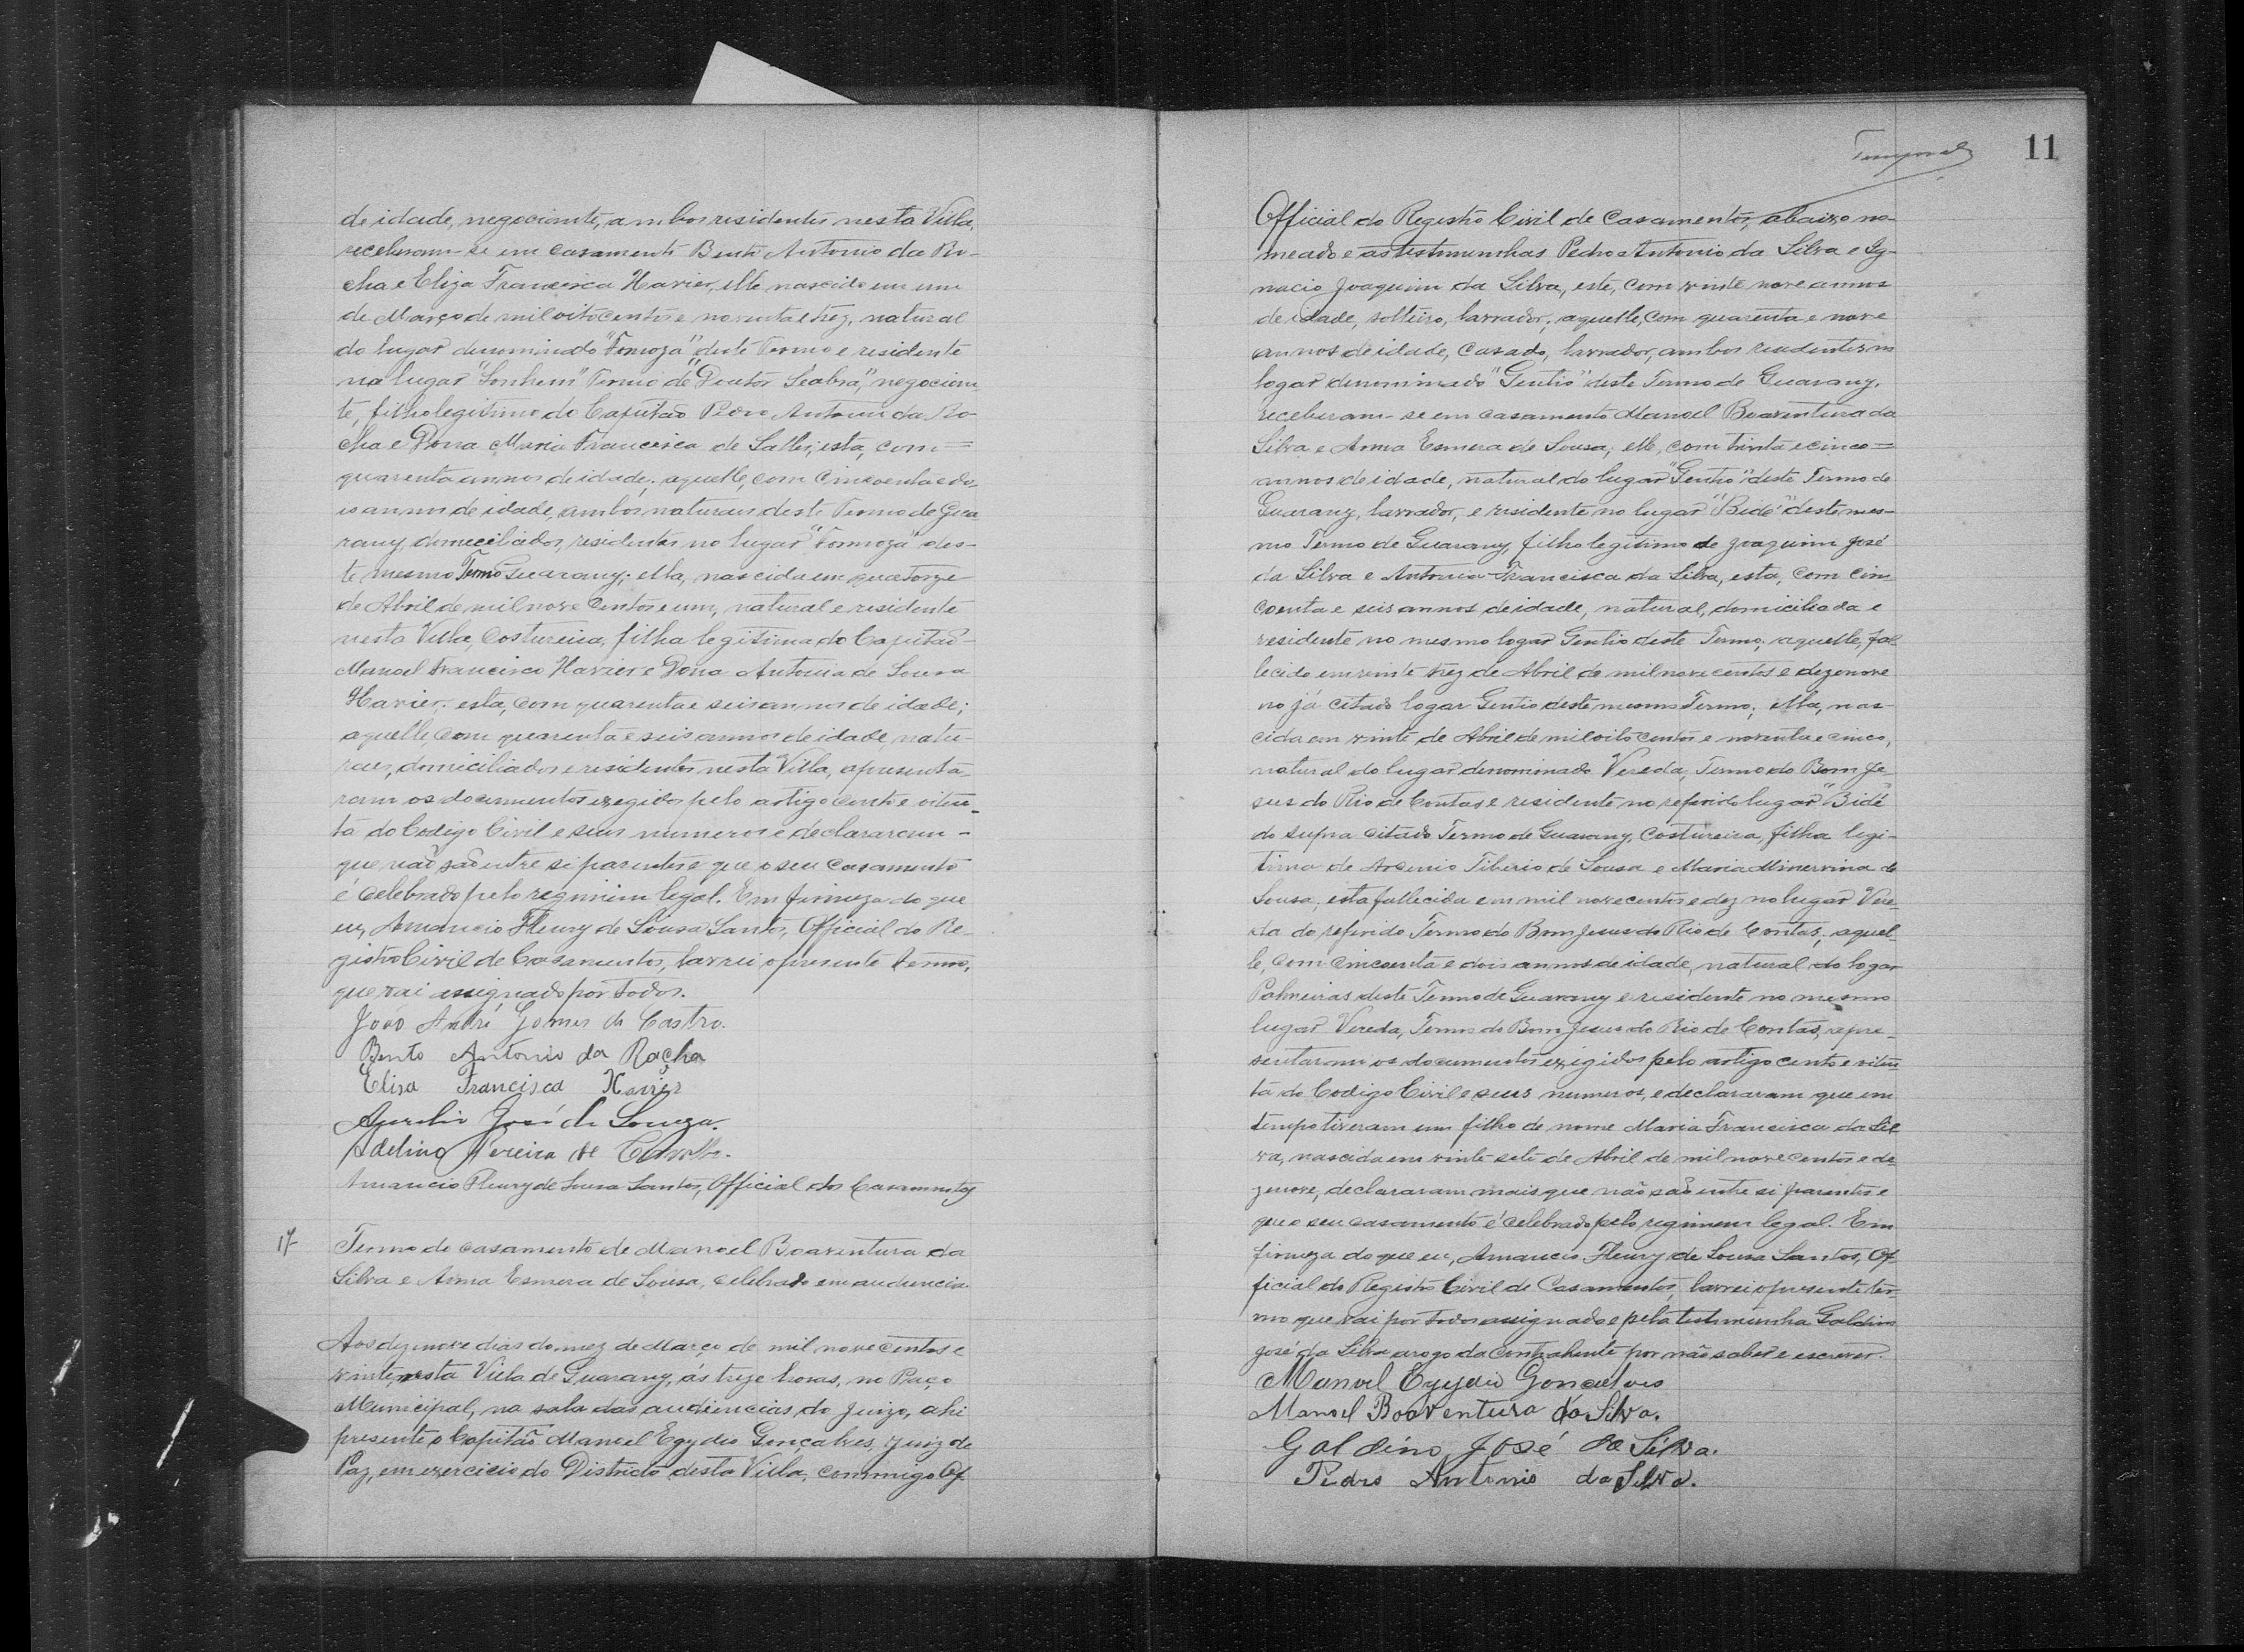 de idade, negociante, ambos residentes nesta Villa,
receberam-se em casamento Bento Antonio da Ro-
cha e Eliza Francisca Xavier, elle nascido em um
de Março de mil oitocentos e noventa e trez, natural
do lugar denominado "Formoza", deste Termo e residente
no lugar "Sonhem" Termo de "Doutor Seabra", negocian
te, filho legitimo do Capitão Pedro Antonio da Ro-
cha e Dona Maria Francisca de Salles; esta, com =
quarenta annos de idade; aquelle, com cincoenta e do-
is annos de idade, ambos naturaes deste Termo de Gua
rany, domiciliados, residentes no lugar "Formoza" des-
te mesmo Termo Guarany; ella, nascida em quatorze
de Abril de mil nove centos e um, natural e residente
nesta Villa, Costureira, filha legitima do Capitaõ-
Manoel Francisco Xavier e Dona Antonia de Sousa
Xavier; esta, com quarenta e seis annos de idade;
aquelle, com quarenta e seis annos de idade, natu-
raes, domiciliados e residentes nesta Villa, apresenta-
ram os documentos exegidos pelo artigo cento e oiten-
ta do Codigo Civil e seus numeros e declararam -
que naõ saõ entre si parentes e que o seu casamento
é celebrado pelo regimim legal. Em firmeza do que
eu, Amancio Fleury de Sousa Santos, Official do Re-
gistro Civil de Casamentos, lavrei o presente termo,
que vai assignado por todos.
João André Gomes de Castro.
Bento Antonio da Rocha
Elisa Francisca Xavier
Aurelio José de Souza.
Adelino Pereira de Carvalho.
Amancio Fleury de Sousa Santos, Official dos Casamentos
17
Termo do casamento de Manoel Boaventura da
Silva e Anna Esmera de Sousa, celebrado em audiencia.
Aos dezenove dias do mez de Março de mil nove centos e
vinte, nesta Villa de Guarany, ás treze horas, no Paço
Municipal, na sala das audiencias do Juizo, ahi
presente o Capitaõ Manoel Egydio Gonçalves, Juiz de
Paz, em exercicio do Districto desta Villa, commigo Of-
11
Official do Registro Civil de Casamentos, abaixo no-
meado e as testemunhas Pedro Antonio da Silva e Ig-
nacio Joaquim da Silva, este, com vinte nove annos
de idade, solteiro, lavrador; aquelle, com quarenta e nove
annos de idade, casado, lavrador, ambos residentes no
logar denominado "Gentio" deste Termo de Guarany,
receberam-se em casamento Manoel Boaventura da
Silva e Anna Esmera de Sousa; elle, com trinta e cinco =
annos de idade, natural do lugar "Gentio" deste Termo de
Guarany, lavrador, e residente no lugar "Bidé" deste mes-
mo Termo de Guarany, filho legitimo de Joaquim José
da Silva e Antonia Francisca da Silva, esta, com cin
coenta e seis annos de idade, natural, domiciliada e
residente no mesmo logar Gentio deste Termo; aquelle, fal
lecido em vinte trez de Abril de mil nove centos e dezenove
no já citado logar Gentio deste mesmo Termo; ella, nas-
cida em vinte de Abril de mil oito centos e noventa e cinco,
natural do lugar denominado Vereda, Termo do Bom Je-
sus do Rio de Contas e residente no referido lugar "Bidé"
do supra citado Termo de Guarany, Costureira, filha legi-
tima de Arsenio Tiberio de Sousa e Maria Minervina de
Sousa, esta fallecida em mil nove centos e dez no lugar Vere-
da do referido Termo do Bom Jesus do Rio de Contas; aquel-
le, com cincoenta e dois annos de idade, natural do logar
Palmeiras deste Termo de Guarany e residente no mesmo
lugar Vereda, Termo do Bom Jesus do Rio de Contas, apre-
sentaram os documentos exigidos pelo artigo cento e oiten
ta do Codigo Civil e seus numeros, e declararam que em
tempo tiveram um filho de nome Maria Francisca da Sil
va, nascida em vinte sete de Abril de mil nove centos e de-
zenove, declararam mais que naõ saõ entre si parentes e
que o seu casamento é celebrado pelo regimem legal. Em
firmeza do que eu, Amancio Fleury de Sousa Santos, Of-
ficial do Registro Civil de Casamentos, lavrei o presente ter-
mo que vai por todos assignado e pela testemunha Galdino
José da Silva a rogo da contrahente por naõ saber e escrever.
Manoel Egydio Gonçalves
Manoel Boaventura da Silva.
Galdino José da Silva.
Pedro Antonio da Silva.